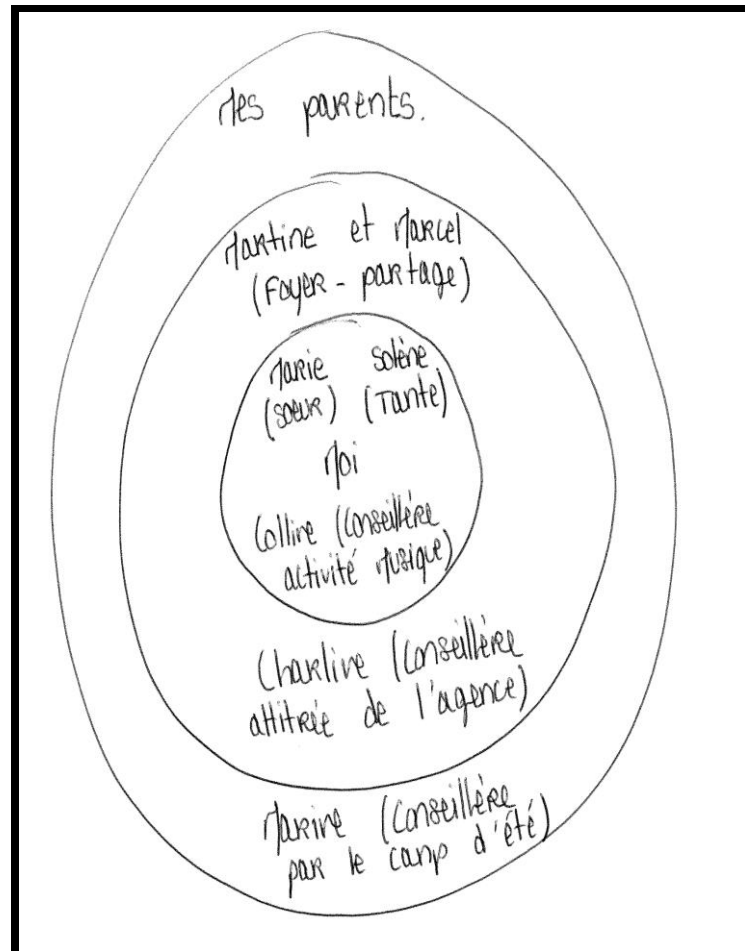 Mes parents.
Martine et Marcel
(Foyer - partage)
Marie Solène
(soeur) (Tante)
Moi
Colline (Conseillère
activité Musique)
Charline (Conseillère
attitrée de l'agence)
Marine (Conseillère
par le camp d'été)